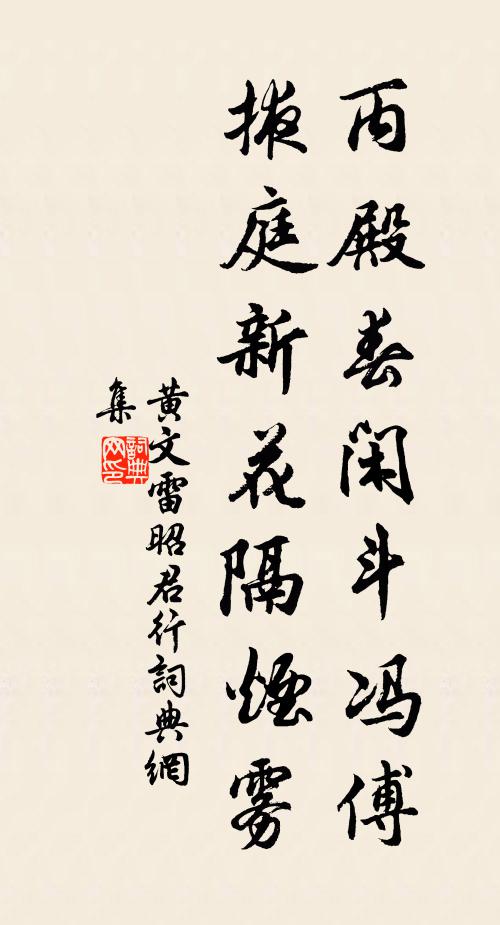 丙殿春闲斗冯傅
掖庭新花隔煙雾
黄文雷昭君行詞典網
集
詞典網印